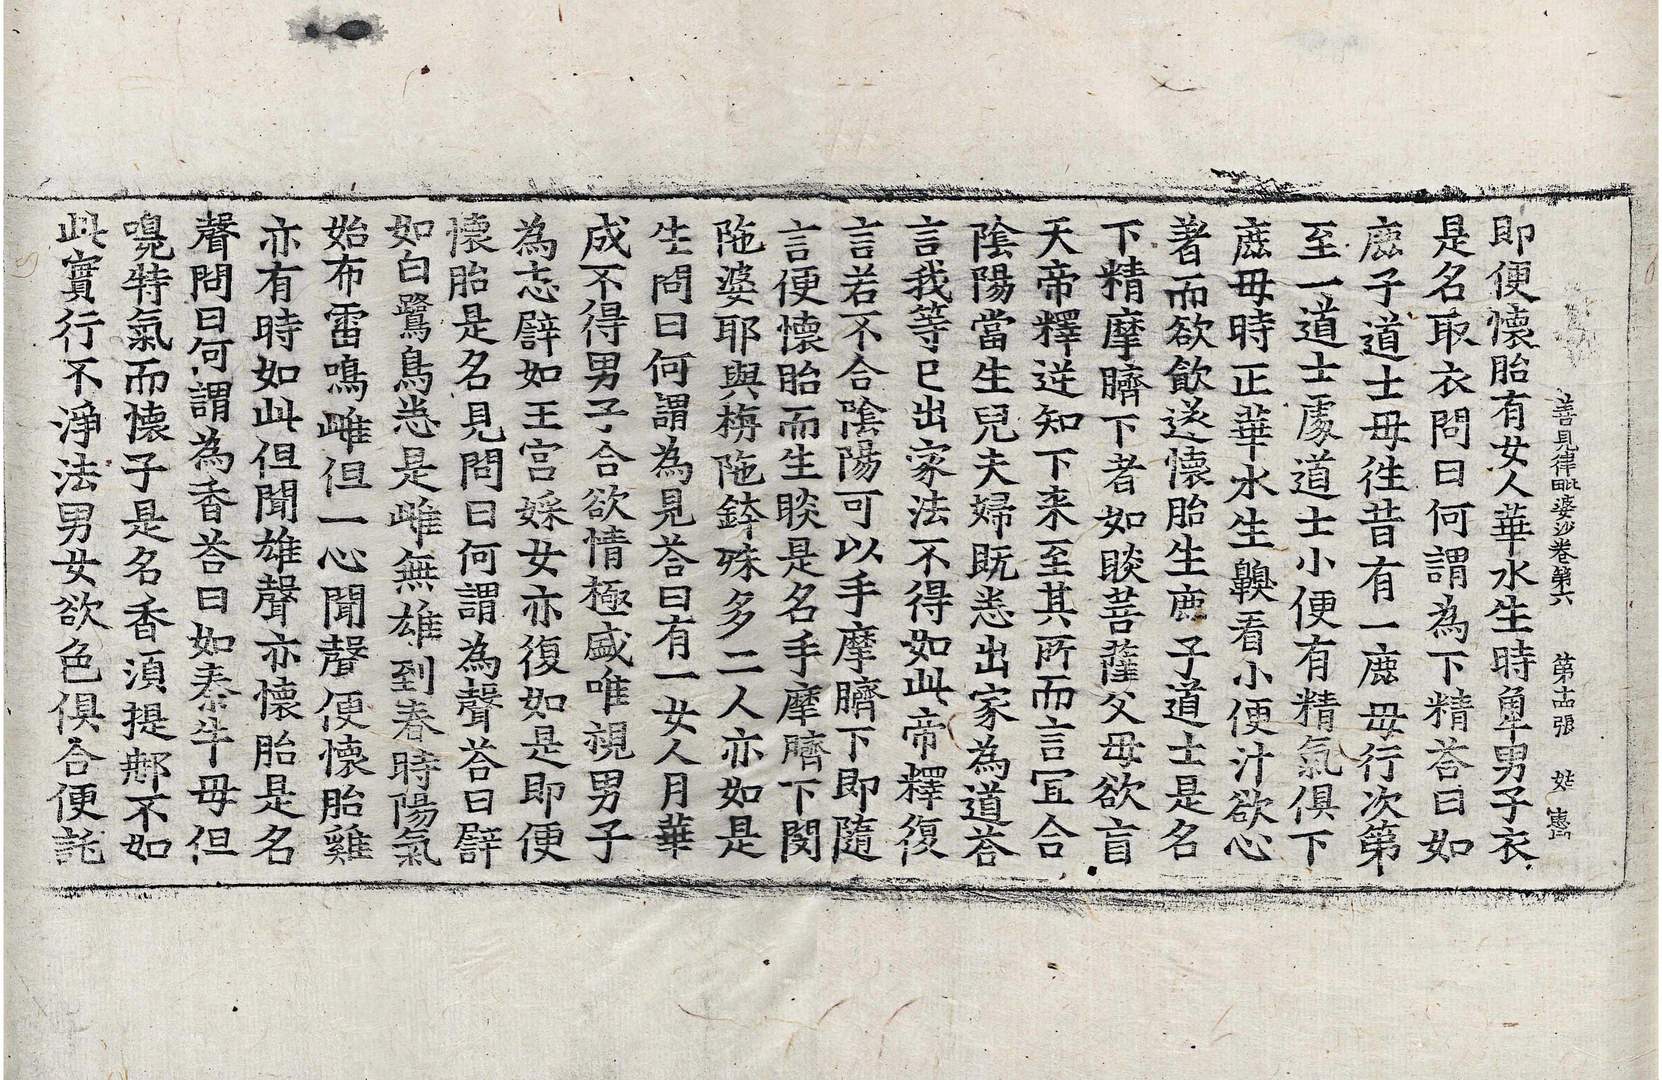 善見律毗婆沙卷第六　第十四張　姓
即便懷胎有女人華水生時車男子衣
是名取衣問曰何謂為下精荅曰如
鹿子道士母徃昔有一鹿母行次第
至一道士處道士小便有精氣俱下
鹿母時正華水生齅看小便汁欲心
著而欲飲遂懷胎生鹿子道士是名
下精摩臍下者如睒菩薩父母欲盲
天帝釋逆知下来至其所而言冝合
陰陽當生兒夫婦既悉出家為道荅
言我等已出家法不得如此帝釋復
言若不合陰陽可以手摩臍下即隨
言便懷胎而生睒是名手摩臍下閔
陁婆耶與栴陁鉢殊多二人亦如是
生問曰何謂為見荅曰有一女人月華
成不得男子合欲情極盛唯視男子
為志譬如王宮婇女亦復如是即便
懷胎是名見問曰何謂為聲荅曰譬
如白鷺鳥悉是雌無雄到春時陽氣
始布雷鳴雌但一心聞聲便懷胎雞
亦有時如此但聞雄聲亦懷胎是名
聲問曰何謂為香荅曰如秦牛母但
嗅特氣而懷子是名香湏提䣕不如
此實行不淨法男女欲色俱合便託